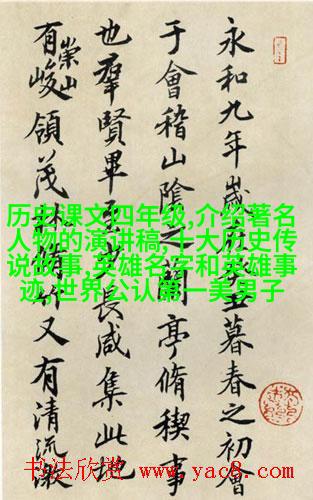 永和九年歲在癸丑暮春之初會
于會稽山陰之蘭亭脩稧事
也羣賢畢至少長咸集此地
有崇山峻領茂林脩竹又有清流激
历史课文四年级,介绍著名
人物的演讲稿,十大历史传
说故事,英雄名字和英雄事
迹,世界公认第一美男子
书法欣赏 www.yac8.com